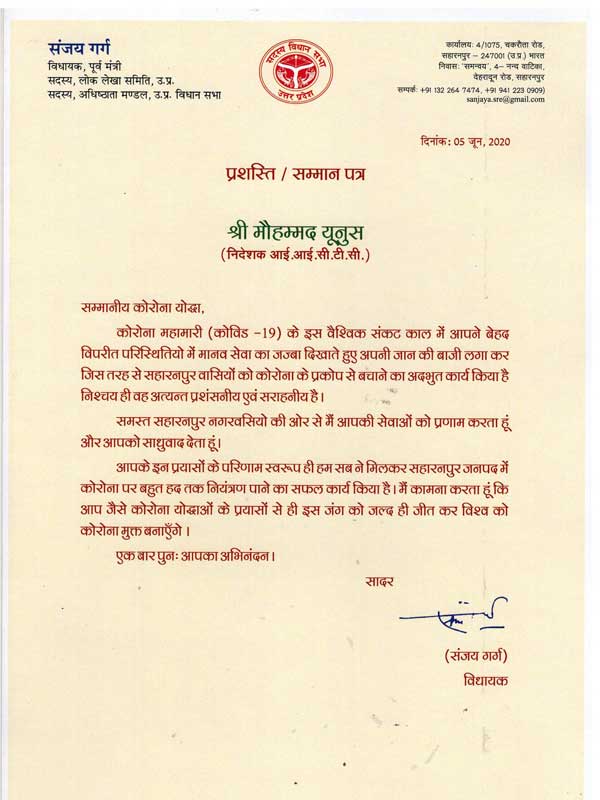 संजय गर्ग
विधायक, पूर्व मंत्री
सदस्य, लोक लेखा समिति, उ.प्र.
सदस्य, अधिष्ठाता मण्डल, उ.प्र. विधान सभा
सदस्य विधान सभा
उत्तर प्रदेश
कार्यालय: 4/1075, चकरौता रोड,
सहारनपुर – 247001 (उ.प्र.) भारत
निवास: 'समन्वय', 4– नन्द वाटिका,
देहरादून रोड, सहारनपुर
सम्पर्क: +91 132 264 7474, +91 941 223 0909)
sanjaya.sre@gmail.com
दिनांक: 05 जून, 2020
प्रशस्ति / सम्मान पत्र
श्री मौहम्मद यूनुस
(निदेशक आई.आई.सी.टी.सी.)
सम्मानीय कोरोना योद्धा,
कोरोना महामारी (कोविड –19) के इस वैश्विक संकट काल में आपने बेहद
विपरीत परिस्थितियो में मानव सेवा का जज्बा दिखाते हुए अपनी जान की बाजी लगा कर
जिस तरह से सहारनपुर वासियों को कोरोना के प्रकोप से बचाने का अदभुत कार्य किया है
निश्चय ही वह अत्यन्त प्रशंसनीय एवं सराहनीय है।
समस्त सहारनपुर नगरवसियो की ओर से मैं आपकी सेवाओं को प्रणाम करता हूं
और आपको साधुवाद देता हूं।
आपके इन प्रयासों के परिणाम स्वरूप ही हम सब ने मिलकर सहारनपुर जनपद में
कोरोना पर बहुत हद तक नियंत्रण पाने का सफल कार्य किया है। मैं कामना करता हूं कि
आप जैसे कोरोना योद्धाओं के प्रयासों से ही इस जंग को जल्द ही जीत कर विश्व को
कोरोना मुक्त बनाएँगे ।
एक बार पुनः आपका अभिनंदन।
सादर
(संजय गर्ग)
विधायक